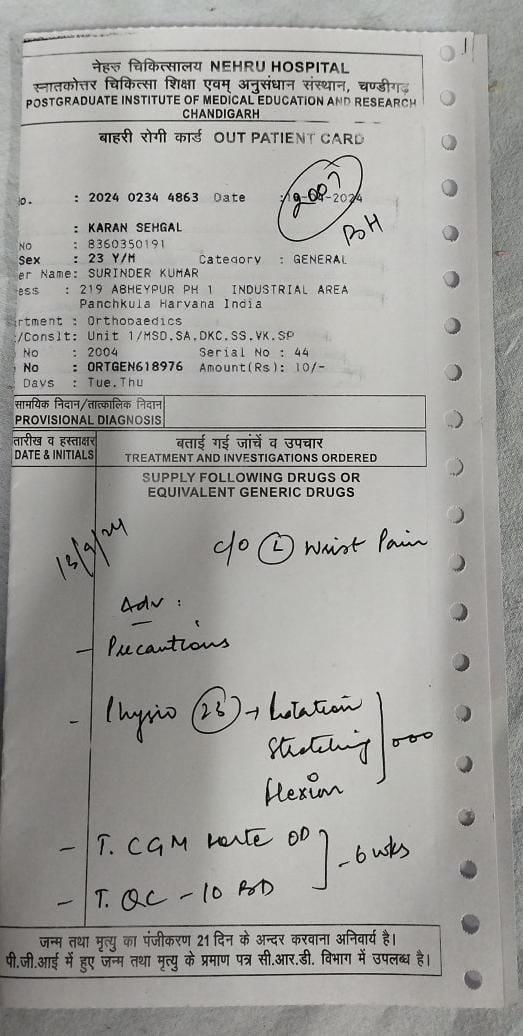 नेहरु चिकित्सालय NEHRU HOSPITAL
स्नातकोत्तर चिकित्सा शिक्षा एवम् अनुसंधान संस्थान, चण्डीगढ़
POSTGRADUATE INSTITUTE OF MEDICAL EDUCATION AND RESEARCH
CHANDIGARH
बाहरी रोगी कार्ड OUT PATIENT CARD
o. : 2024 0234 4863 Date -2024
2007
: KARAN SEHGAL
BH
No : 8360350191
Sex : 23 Y/M Category : GENERAL
er Name: SURINDER KUMAR
ess : 219 ABHEYPUR PH 1 INDUSTRIAL AREA
Panchkula Haryana India
rtment : Orthopaedics
/Conslt: Unit 1/MSD.SA.DKC.SS.VK.SP
No : 2004 Serial No : 44
No : ORTGEN618976 Amount(Rs): 10/-
Days : Tue.Thu
सामयिक निदान/तात्कालिक निदान
PROVISIONAL DIAGNOSIS
तारीख व हस्ताक्षर
DATE & INITIALS
बताई गई जांचें व उपचार
TREATMENT AND INVESTIGATIONS ORDERED
SUPPLY FOLLOWING DRUGS OR
EQUIVALENT GENERIC DRUGS
c/o (L) Wrist Pain
Adv :
- Precautions
- Physio → Rotation
Stretching
flexion
- T. CGM forte OD
- 6 wks
- T. QC - 10 BD
जन्म तथा मृत्यु का पंजीकरण 21 दिन के अन्दर करवाना अनिवार्य है।
पी.जी.आई में हुए जन्म तथा मृत्यु के प्रमाण पत्र सी.आर.डी. विभाग में उपलब्ध है।